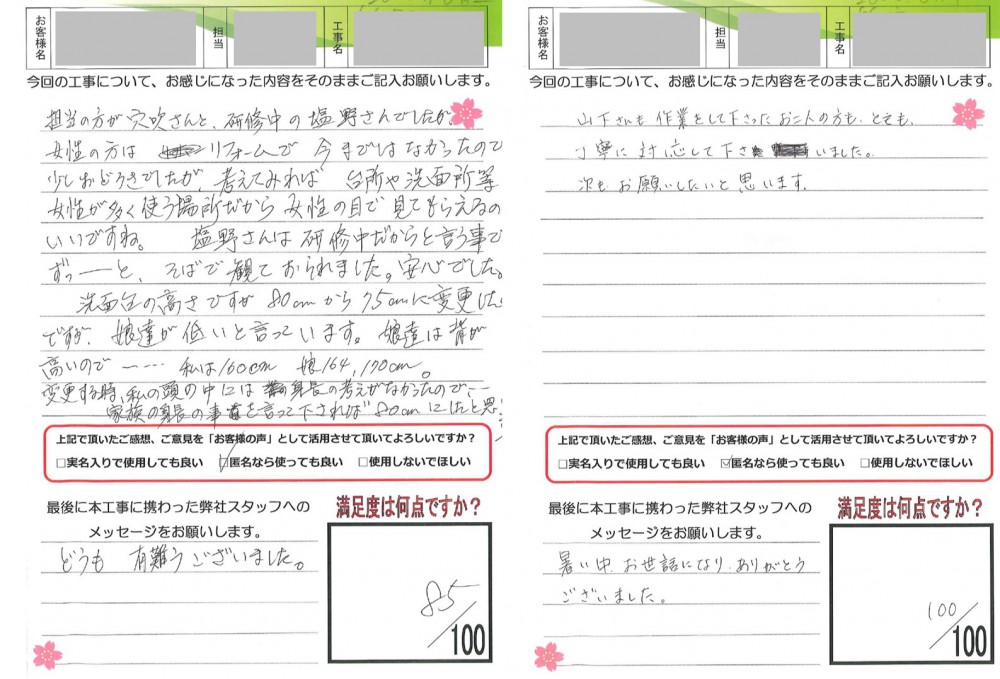 お客様名
担当
工事名
今回の工事について、お感じになった内容をそのままご記入お願いします。
担当の方が穴吹さんと、研修中の塩野さんでしたが、
女性の方は リフォームで 今まではなかったので
少しおどろきでしたが、考えてみれば 台所や洗面所等
女性が多く使う場所だから 女性の目で見てもらえるの
いいですね。 塩野さんは研修中だからと言う事で
ずっーと、そばで観ておられました。安心でした。
洗面台の高さですが 80cmから75cmに変更した
ですが、娘達が低いと言っています。娘達は背が
高いので …… 私は160cm 娘164,170cm。
変更する時、私の頭の中には 身長の考えがなかったので…
家族の身長の事を言って下されば 80cmにしたと思
上記で頂いたご感想、ご意見を「お客様の声」として活用させて頂いてよろしいですか？
□実名入りで使用しても良い ☑匿名なら使っても良い □使用しないでほしい
最後に本工事に携わった弊社スタッフへの
メッセージをお願いします。
どうも 有難うございました。
満足度は何点ですか？
85/100
お客様名
担当
工事名
今回の工事について、お感じになった内容をそのままご記入お願いします。
山下さんも 作業をして下さったお二人の方も、とても、
丁寧に対応して下さ いました。
次も お願いしたいと思います。
上記で頂いたご感想、ご意見を「お客様の声」として活用させて頂いてよろしいですか？
□実名入りで使用しても良い ☑匿名なら使っても良い □使用しないでほしい
最後に本工事に携わった弊社スタッフへの
メッセージをお願いします。
暑い中、お世話になり、ありがとう
ございました。
満足度は何点ですか？
100/100